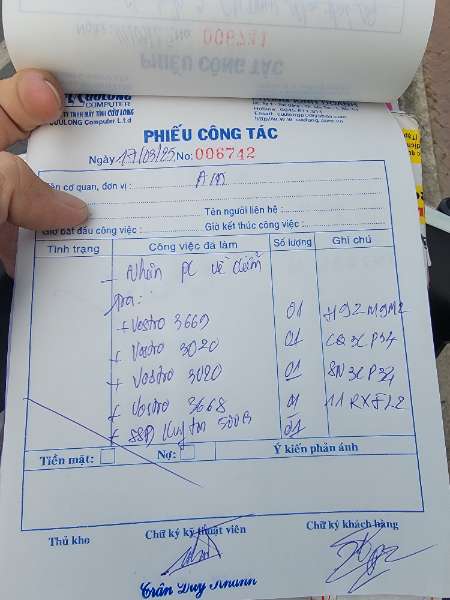 006741
PHIẾU CÔNG TÁC
CUULONG
COMPUTER
CUULONG Computer L.t.d
PHIẾU CÔNG TÁC
Ngày 17/03/25 No: 006742
Tên cơ quan, đơn vị :
Tên người liên hệ :
Giờ bắt đầu công việc : Giờ kết thúc công việc :
Tình trạng Công việc đã làm Số lượng Ghi chú
- Nhận PC về kiểm
tra:
+ Vostro 3669 01 H92M9M2
+ Vostro 3020 01 CQ3CP34
+ Vostro 3020 01 8N3CP34
+ Vostro 3668 01
+ SSD 500B 01
Tiền mặt: Nợ: Ý kiến phản ánh
Thủ kho Chữ ký kỹ thuật viên Chữ ký khách hàng
Trần Duy Khanh